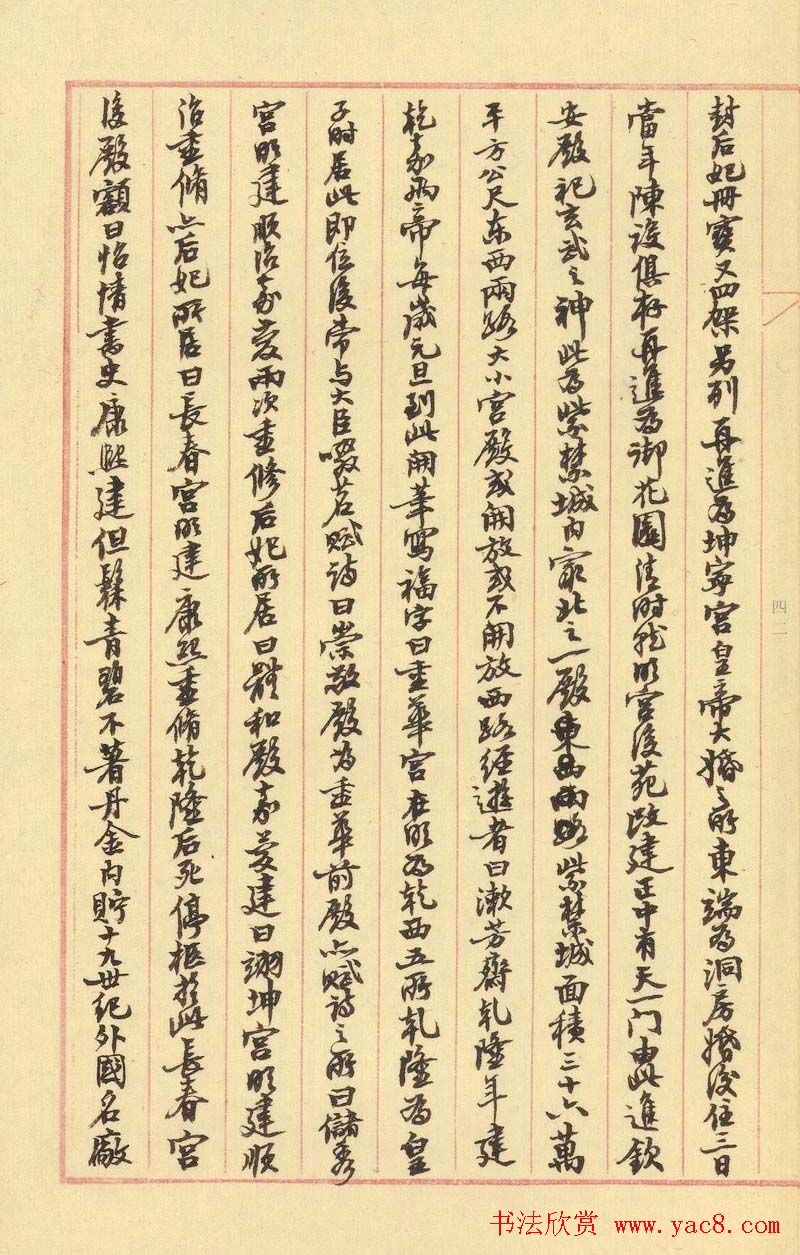 封后妃冊寶又四架另列再進為坤寧宮皇帝大婚之所東端為洞房婚後住三日
當年陳設俱存再進為御花園清時就明宮後苑改建正中有天一门由此進欽
安殿祀玄武之神此為紫禁城内最北之一殿東西兩路紫禁城面積三十六萬
平方公尺东西兩路大小宮殿或開放或不開放西路经遊者曰漱芳齋乾隆年建
乾嘉兩帝每歲元旦到此開筆寫福字曰重華宮在明為乾西五所乾隆為皇
子時居此即位後常与大臣啜茗賦詩曰崇敬殿為重華前殿亦賦詩之所曰儲秀
宮明建順治嘉慶兩次重修后妃所居曰體和殿嘉慶建曰翊坤宮明建順
治重脩亦后妃所居曰長春宮明建康熙重脩乾隆后死停柩於此長春宮
後殿額曰怡情書史康熙建但髹青碧不著丹金内貯十九世纪外國名廠
四二
书法欣赏 www.yac8.com